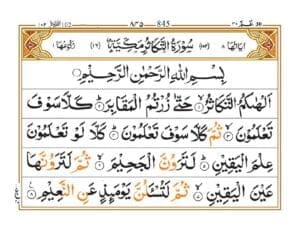 ٨٤٥ 845
اٰیَاتُهَا ٨ سُوْرَةُ التَّكَاثُرِ مَكِّيَّةٌ (١٦) رُكُوْعُهَا ١
بِسْمِ اللهِ الرَّحْمٰنِ الرَّحِيْمِ
اَلْهٰىكُمُ التَّكَاثُرُ ۙ حَتّٰى زُرْتُمُ الْمَقَابِرَ ؕ كَلَّا سَوْفَ
تَعْلَمُوْنَ ۙ ثُمَّ كَلَّا سَوْفَ تَعْلَمُوْنَ ؕ كَلَّا لَوْ تَعْلَمُوْنَ
عِلْمَ الْيَقِيْنِ ؕ لَتَرَوُنَّ الْجَحِيْمَ ۙ ثُمَّ لَتَرَوُنَّهَا
عَيْنَ الْيَقِيْنِ ۙ ثُمَّ لَتُسْـَٔلُنَّ يَوْمَئِذٍ عَنِ النَّعِيْمِ ٨